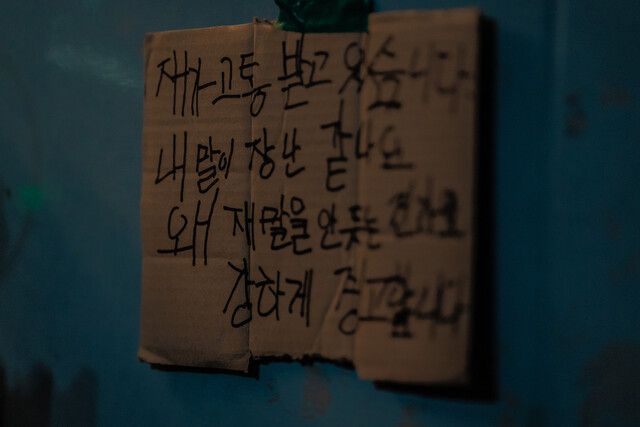 재가 고통 받고 있습니다.
내 말이 장난 같나요
왜 재 말을 안 듯는 건가요
강하게 경고합니다